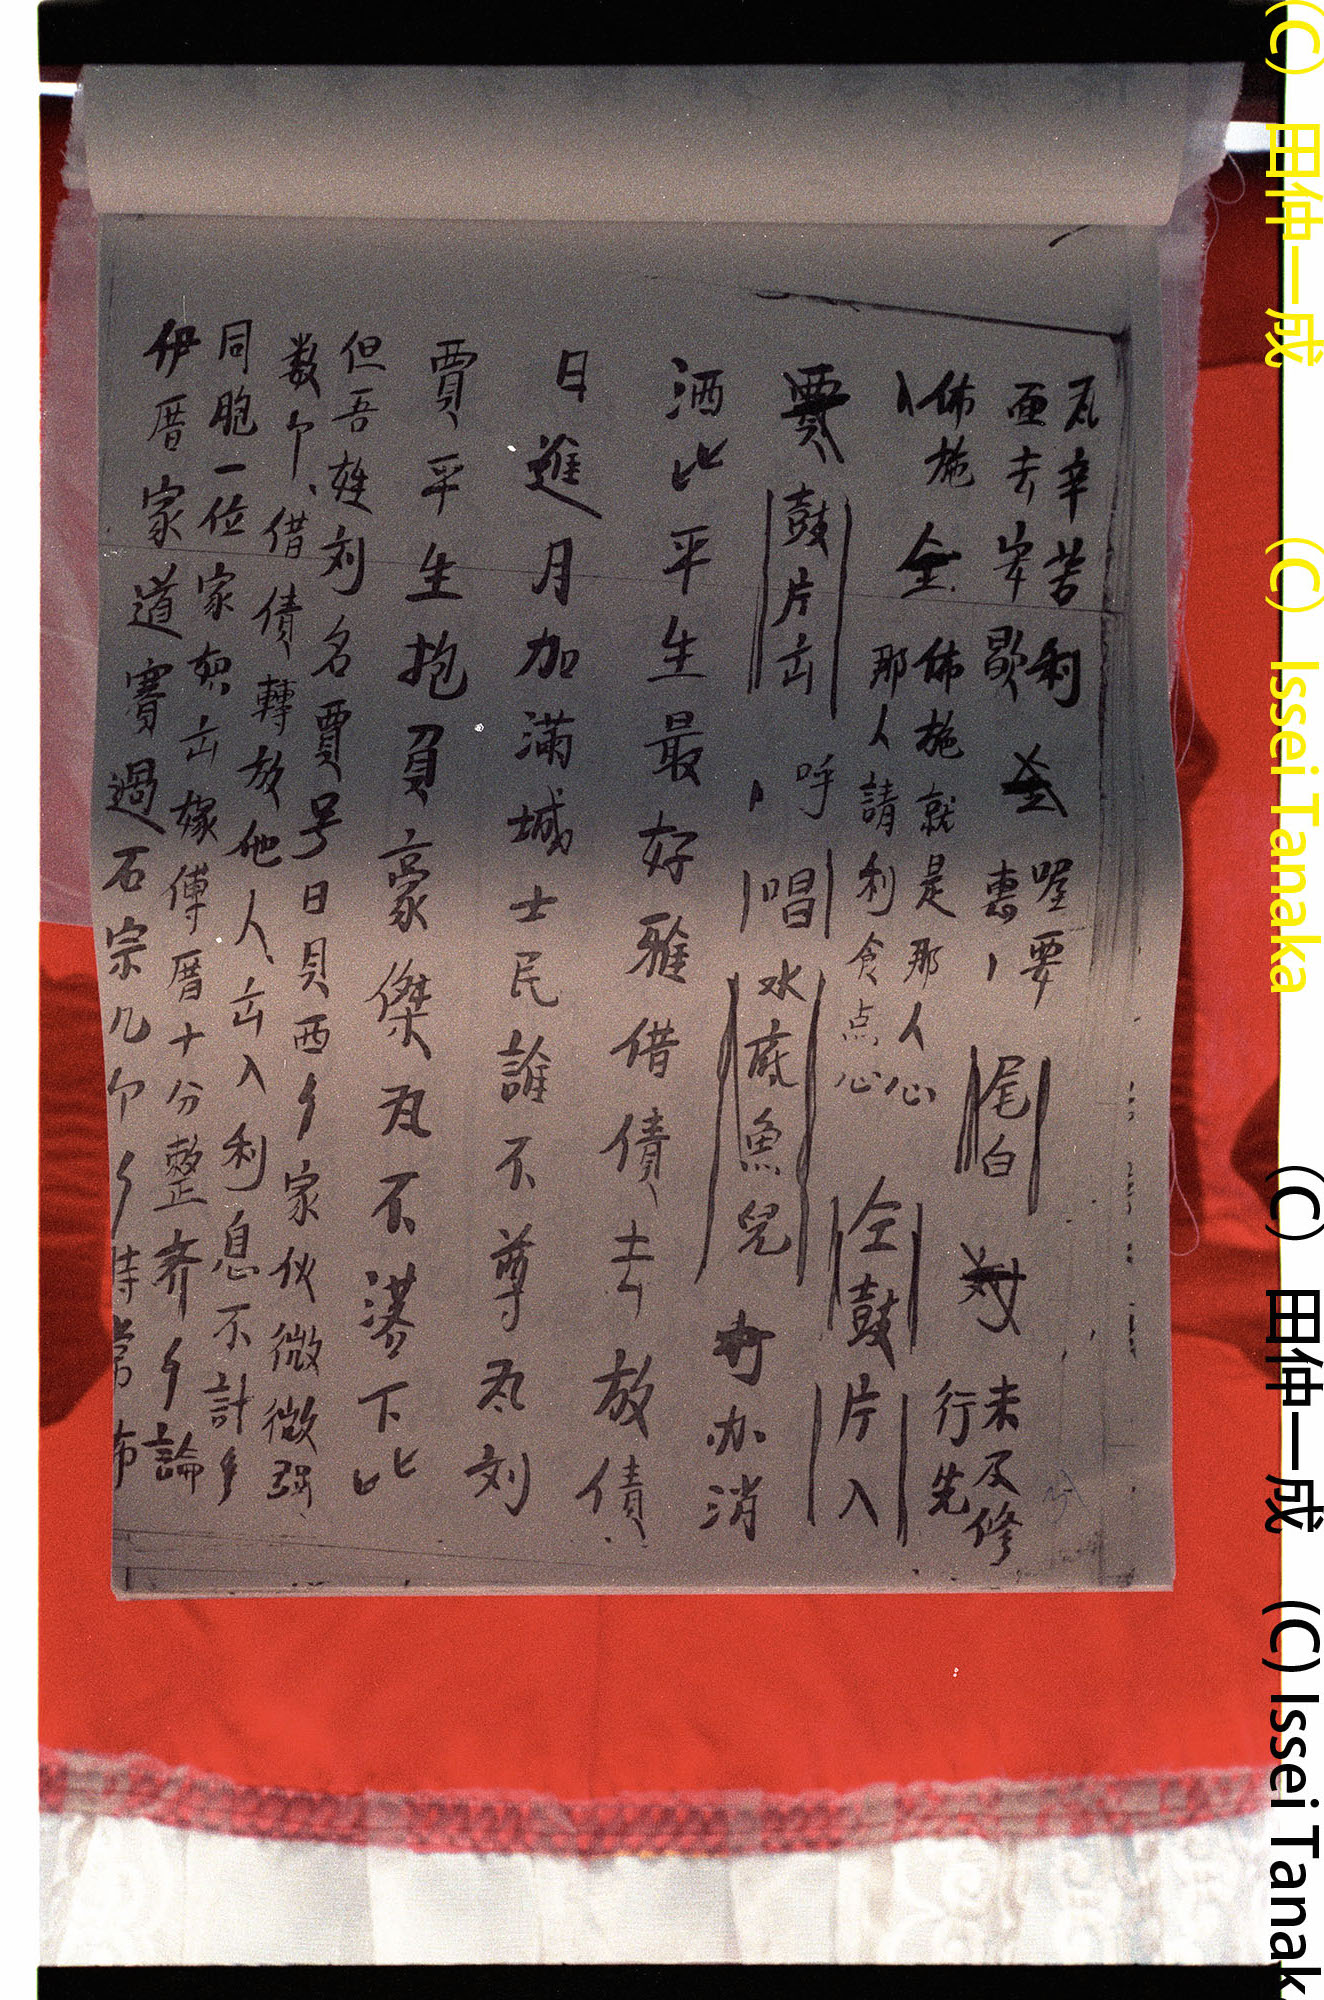 辛苦利
亜去岁歇
喔要
惠
尾白
未及修
行先
佈施
全
佈施就是那人心
那人請利食点心
仝鼓
片入
賈
鼓片
呼
唱
水底魚兒
加消
洒比平生最好雅借債去放債
日進月加滿城士民誰不尊為刘
賈平生抱負豪傑為不落下比
但吾姓刘名賈号日貝西乡家伙微微弱
数个借債轉放他人去入利息不計多
同胞一位家如去嫁傅厝十分整齐乡論
伊厝家道賽過石宗几个乡時常布
(C) 田仲一成 (C) Issei Tanaka (C) 田仲一成 (C) Issei Tanak